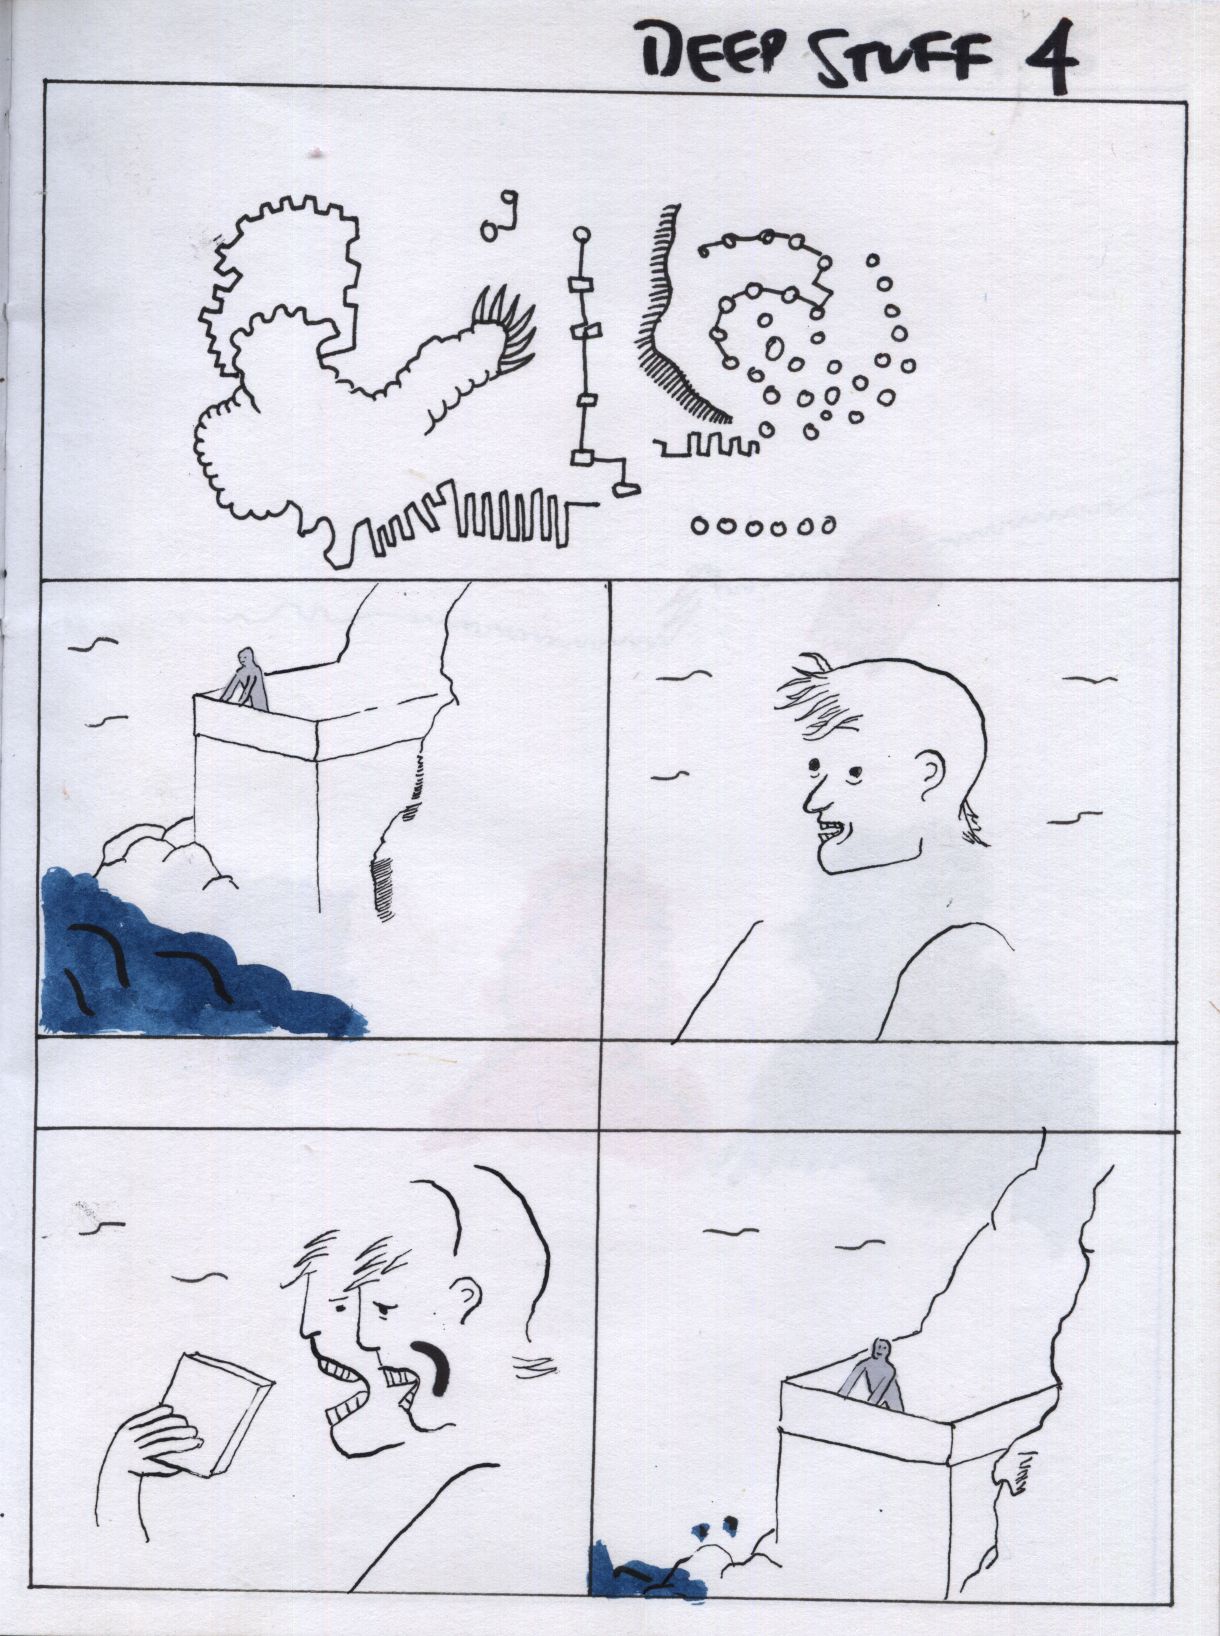 DEEP STUFF 4